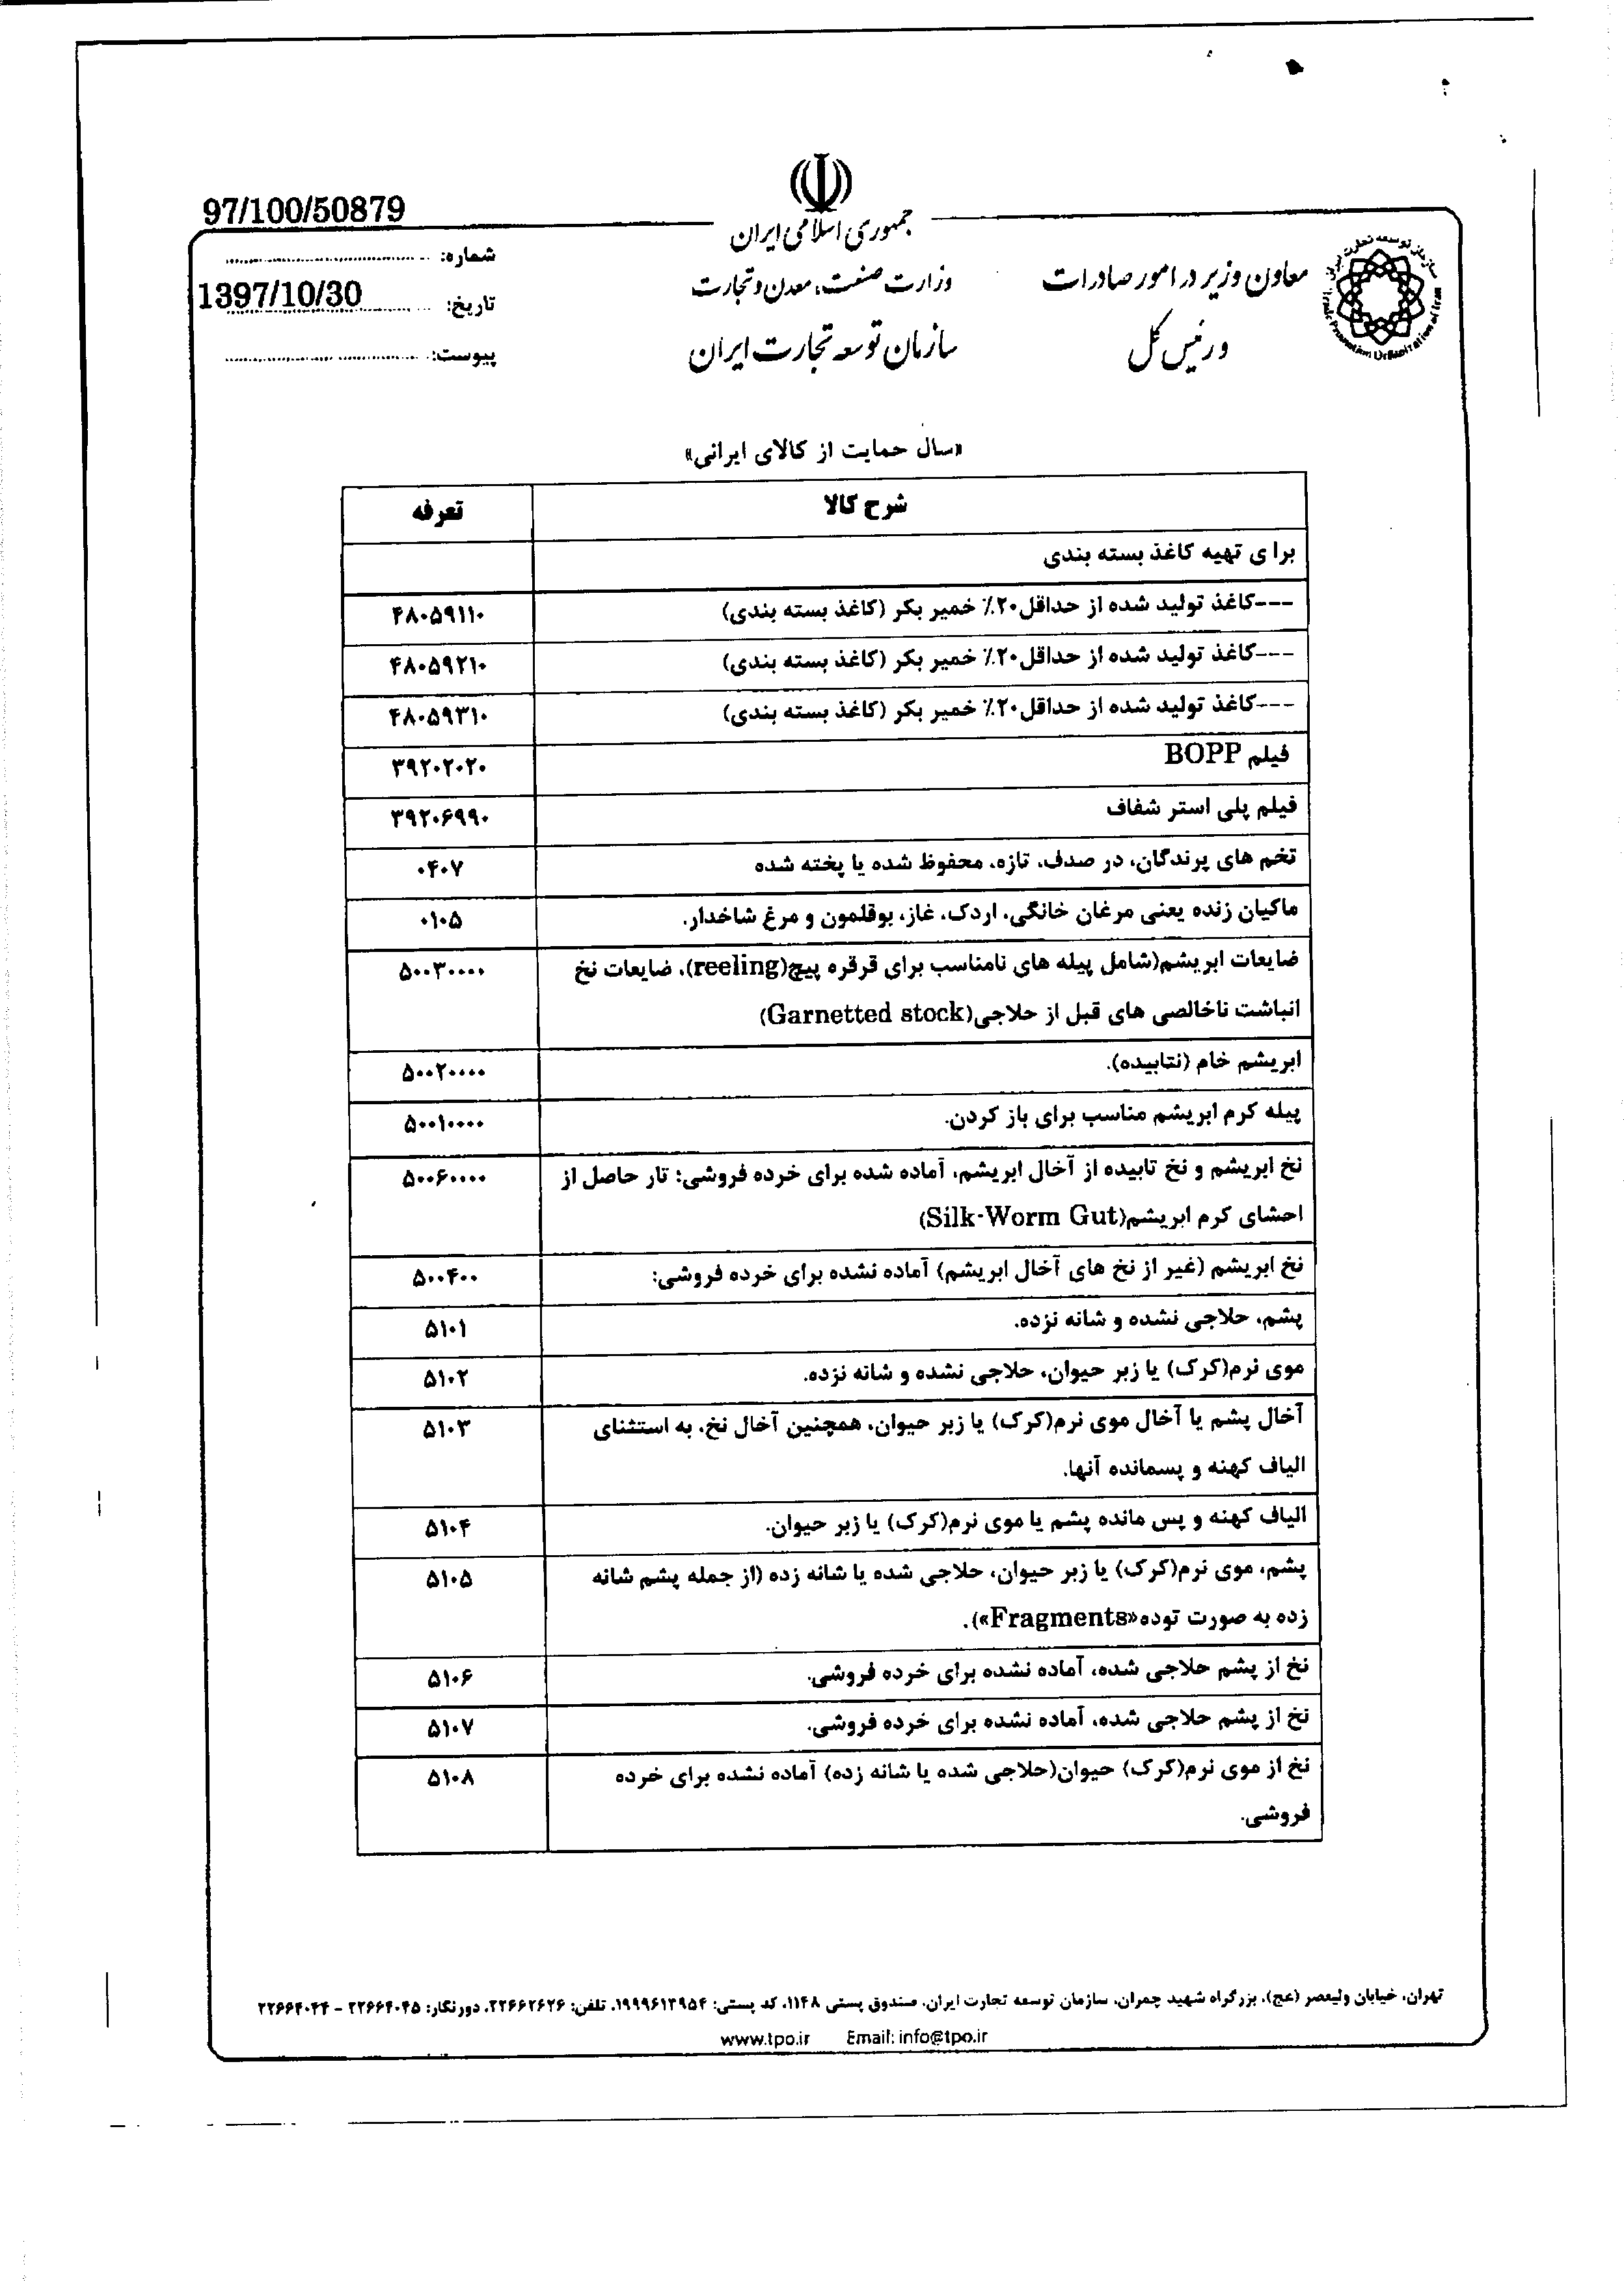 97/100/50879
شماره:
1397/10/30
تاریخ:
پیوست:
جمهوری اسلامی ایران
وزارت صنعت، معدن و تجارت
سازمان توسعه تجارت ایران
معاون وزیر در امور صادرات
و رئیس کل
سازمان توسعه تجارت ایران
Trade Promotion Organization of Iran
«سال حمایت از کالای ایرانی»
شرح کالا تعرفه
برای تهیه کاغذ بسته بندی
---کاغذ تولید شده از حداقل۲۰٪ خمیر بکر (کاغذ بسته بندی) ۴۸۰۵۹۱۱۰
---کاغذ تولید شده از حداقل۲۰٪ خمیر بکر (کاغذ بسته بندی) ۴۸۰۵۹۲۱۰
---کاغذ تولید شده از حداقل۲۰٪ خمیر بکر (کاغذ بسته بندی) ۴۸۰۵۹۳۱۰
فیلم BOPP ۳۹۲۰۲۰۲۰
فیلم پلی استر شفاف ۳۹۲۰۶۹۹۰
تخم های پرندگان، در صدف، تازه، محفوظ شده یا پخته شده ۰۴۰۷
ماکیان زنده یعنی مرغان خانگی، اردک، غاز، بوقلمون و مرغ شاخدار. ۰۱۰۵
ضایعات ابریشم(شامل پیله های نامناسب برای قرقره پیچ(reeling)، ضایعات نخ ۵۰۰۳۰۰۰۰
انباشت ناخالصی های قبل از حلاجی(Garnetted stock)
ابریشم خام (نتابیده). ۵۰۰۲۰۰۰۰
پیله کرم ابریشم مناسب برای باز کردن. ۵۰۰۱۰۰۰۰
نخ ابریشم و نخ تابیده از آخال ابریشم، آماده شده برای خرده فروشی: تار حاصل از ۵۰۰۶۰۰۰۰
احشای کرم ابریشم(Silk-Worm Gut)
نخ ابریشم (غیر از نخ های آخال ابریشم) آماده نشده برای خرده فروشی: ۵۰۰۴۰۰
پشم، حلاجی نشده و شانه نزده. ۵۱۰۱
موی نرم(کرک) یا زبر حیوان، حلاجی نشده و شانه نزده. ۵۱۰۲
آخال پشم یا آخال موی نرم(کرک) یا زبر حیوان، همچنین آخال نخ، به استثنای ۵۱۰۳
الیاف کهنه و پسمانده آنها.
الیاف کهنه و پس مانده پشم یا موی نرم(کرک) یا زبر حیوان. ۵۱۰۴
پشم، موی نرم(کرک) یا زبر حیوان، حلاجی شده یا شانه زده (از جمله پشم شانه ۵۱۰۵
زده به صورت توده«Fragments»).
نخ از پشم حلاجی شده، آماده نشده برای خرده فروشی. ۵۱۰۶
نخ از پشم حلاجی شده، آماده نشده برای خرده فروشی. ۵۱۰۷
نخ از موی نرم(کرک) حیوان(حلاجی شده یا شانه زده) آماده نشده برای خرده ۵۱۰۸
فروشی.
تهران، خیابان ولیعصر (عج)، بزرگراه شهید چمران، سازمان توسعه تجارت ایران، صندوق پستی ۱۱۴۸، کد پستی: ۱۹۹۹۶۱۳۹۵۴، تلفن: ۲۲۶۶۲۶۲۶، دورنگار: ۲۲۶۶۴۰۴۵ - ۲۲۶۶۴۰۴۴
www.tpo.ir Email: info@tpo.ir